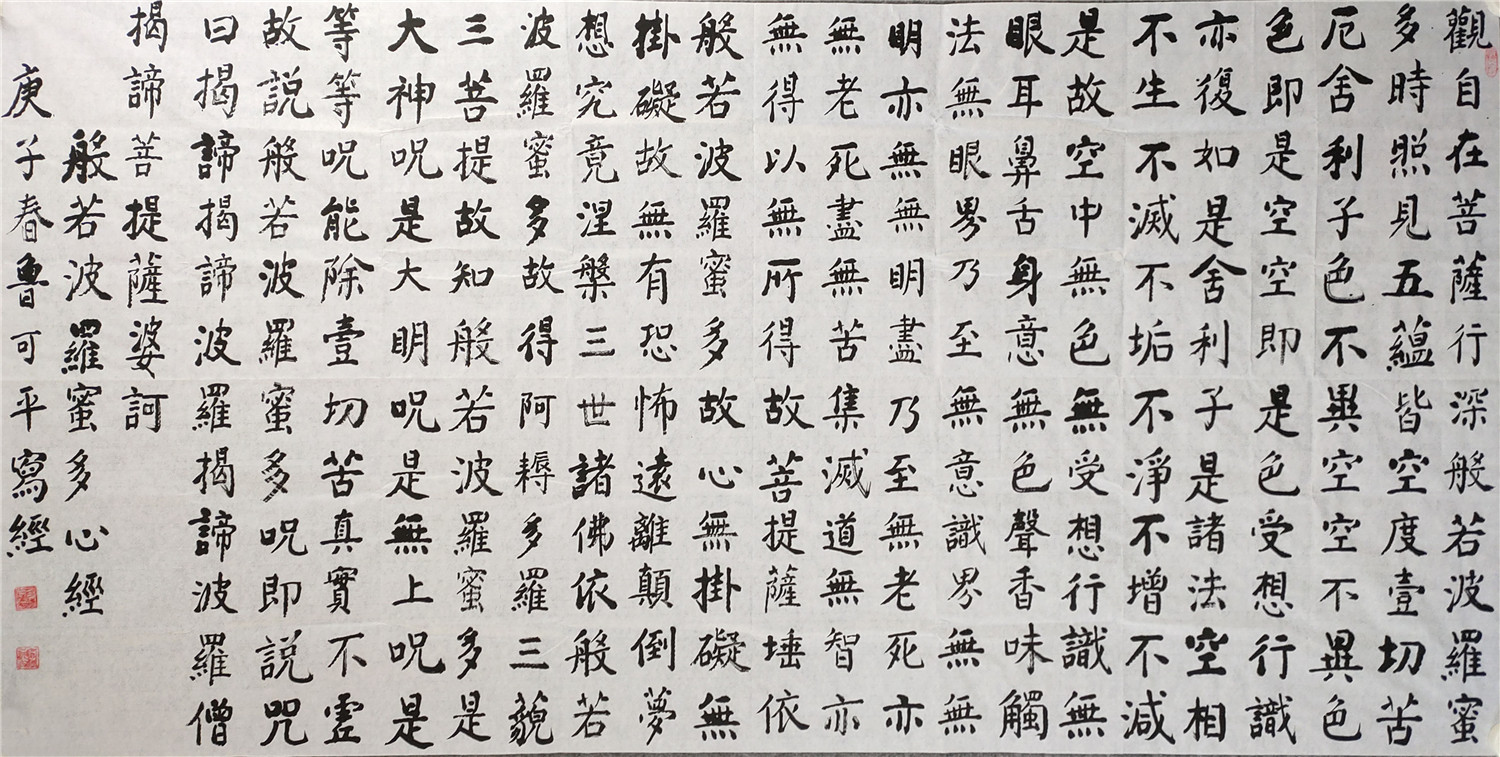 觀自在菩薩行深般若波羅蜜
多時照見五蘊皆空度壹切苦
厄舍利子色不異空空不異色
色即是空空即是色受想行識
亦復如是舍利子是諸法空相
不生不滅不垢不淨不增不減
是故空中無色無受想行識無
眼耳鼻舌身意無色聲香味觸
法無眼界乃至無意識界無無
明亦無無明盡乃至無老死亦
無老死盡無苦集滅道無智亦
無得以無所得故菩提薩埵依
般若波羅蜜多故心無掛礙無
掛礙故無有恐怖遠離顛倒夢
想究竟涅槃三世諸佛依般若
波羅蜜多故得阿耨多羅三藐
三菩提故知般若波羅蜜多是
大神呪是大明呪是無上呪是
等等呪能除壹切苦真實不虛
故説般若波羅蜜多呪即説咒
曰揭諦揭諦波羅揭諦波羅僧
揭諦菩提薩婆訶
般若波羅蜜多心經
庚子春魯可平寫經